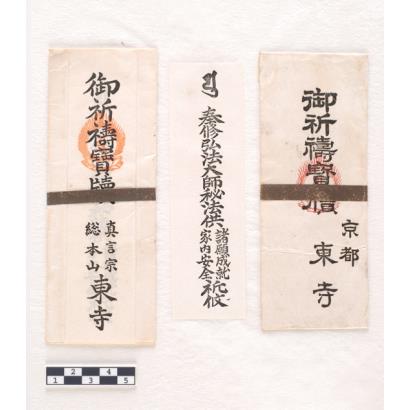 御祈禱寳牘
真言宗
総本山
東寺
奉修弘法大師秘法供
諸願成就
家内安全
祈攸
御祈禱寳牘
京都
東寺
1 2 3 4 5